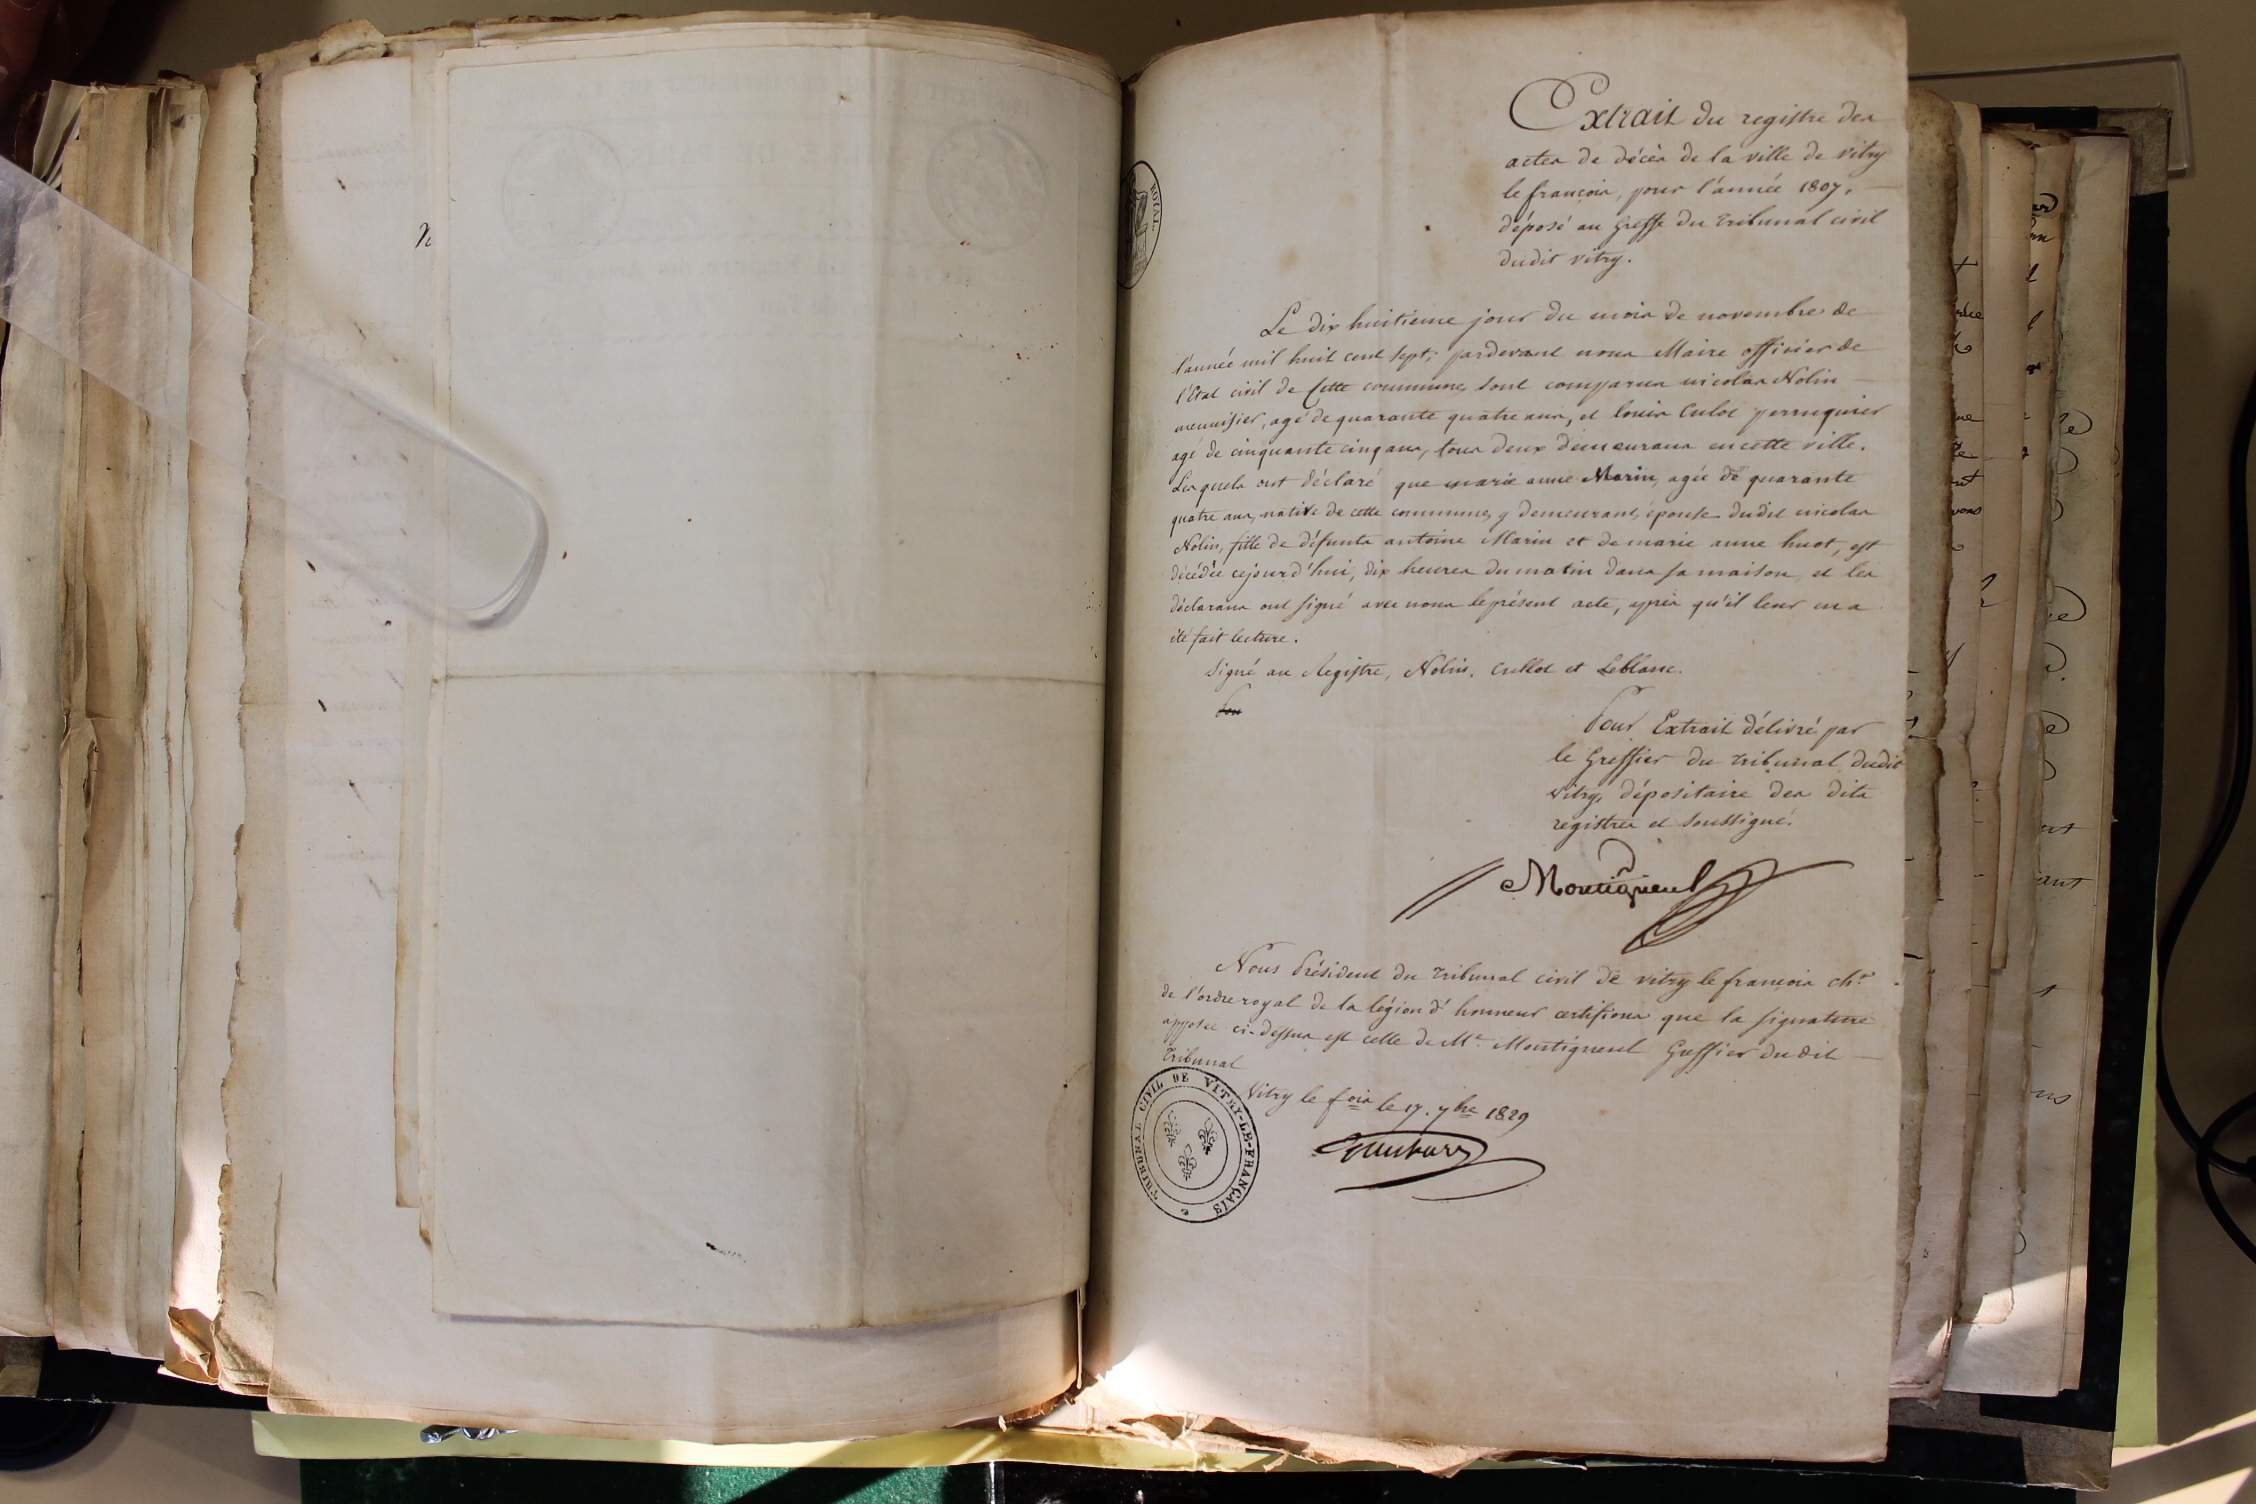 Extrait du registre des
actes de décès de la ville de vitry
le françois, pour l'année 1807,
déposé au greffe du tribunal civil
dudit vitry.
Le dix huitieme jour du mois de novembre de
l'année mil huit cent sept, pardevant nous Maire officier de
l'Etat civil de Cette commune, sont comparus nicolas Nolin
menuisier, agé de quarante quatre ans, et louis Culot perruquier
agé de cinquante cinq ans, tous deux demeurans en cette ville.
Lesquels ont déclaré que marie anne Marin, agée de quarante
quatre ans, native de cette commune, y demeurant, épouse dudit nicolas
Nolin, fille de défunts antoine Marin et de marie anne huot, est
décédée cejourd'hui, dix heures du matin dans sa maison, et les
déclarans ont signé avec nous le présent acte, après qu'il leur en a
été fait lecture.
Signé au Registre, Nolin, Cullot et Leblanc.
Pour Extrait délivré par
le Greffier du tribunal dudit
Vitry, dépositaire des dits
registres et soussigné.
Montigneul
Nous Président du tribunal civil de vitry le françois chr
de l'ordre royal de la légion d'honneur certifions que la signature
apposée ci-dessus est celle de Me Montigneul Greffier du dit
Tribunal
Vitry le fois le 17. 7bre 1829
TRIBUNAL CIVIL DE VITRY-LE-FRANÇAIS
ROYAL